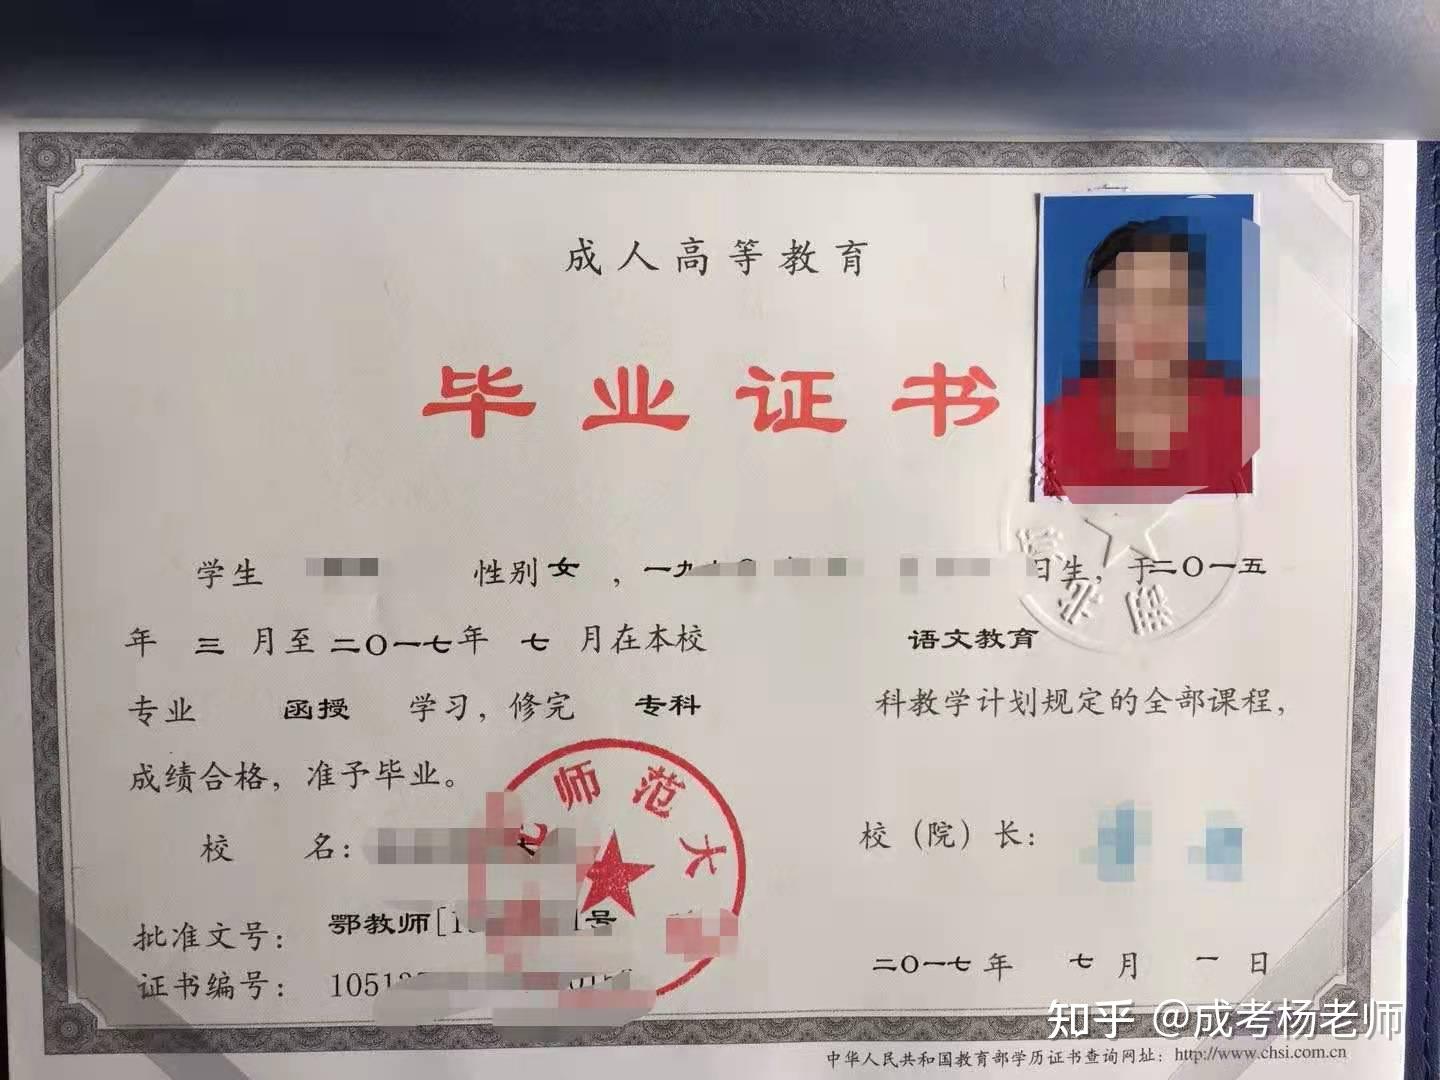 成人高等教育
毕业证书
学生 性别 女 , 一九 日生, 于二〇一五
年 三 月至 二〇一七年 七 月在本校 语文教育
专业 函授 学习, 修完 专科 科教学计划规定的全部课程,
成绩合格, 准予毕业。
师范大
校 名: 校（院）长:
批准文号: 鄂教师[1 号
证书编号: 1051
二〇一七年 七 月 一 日
湖北
知乎 @成考杨老师
中华人民共和国教育部学历证书查询网址: http://www.chsi.com.cn